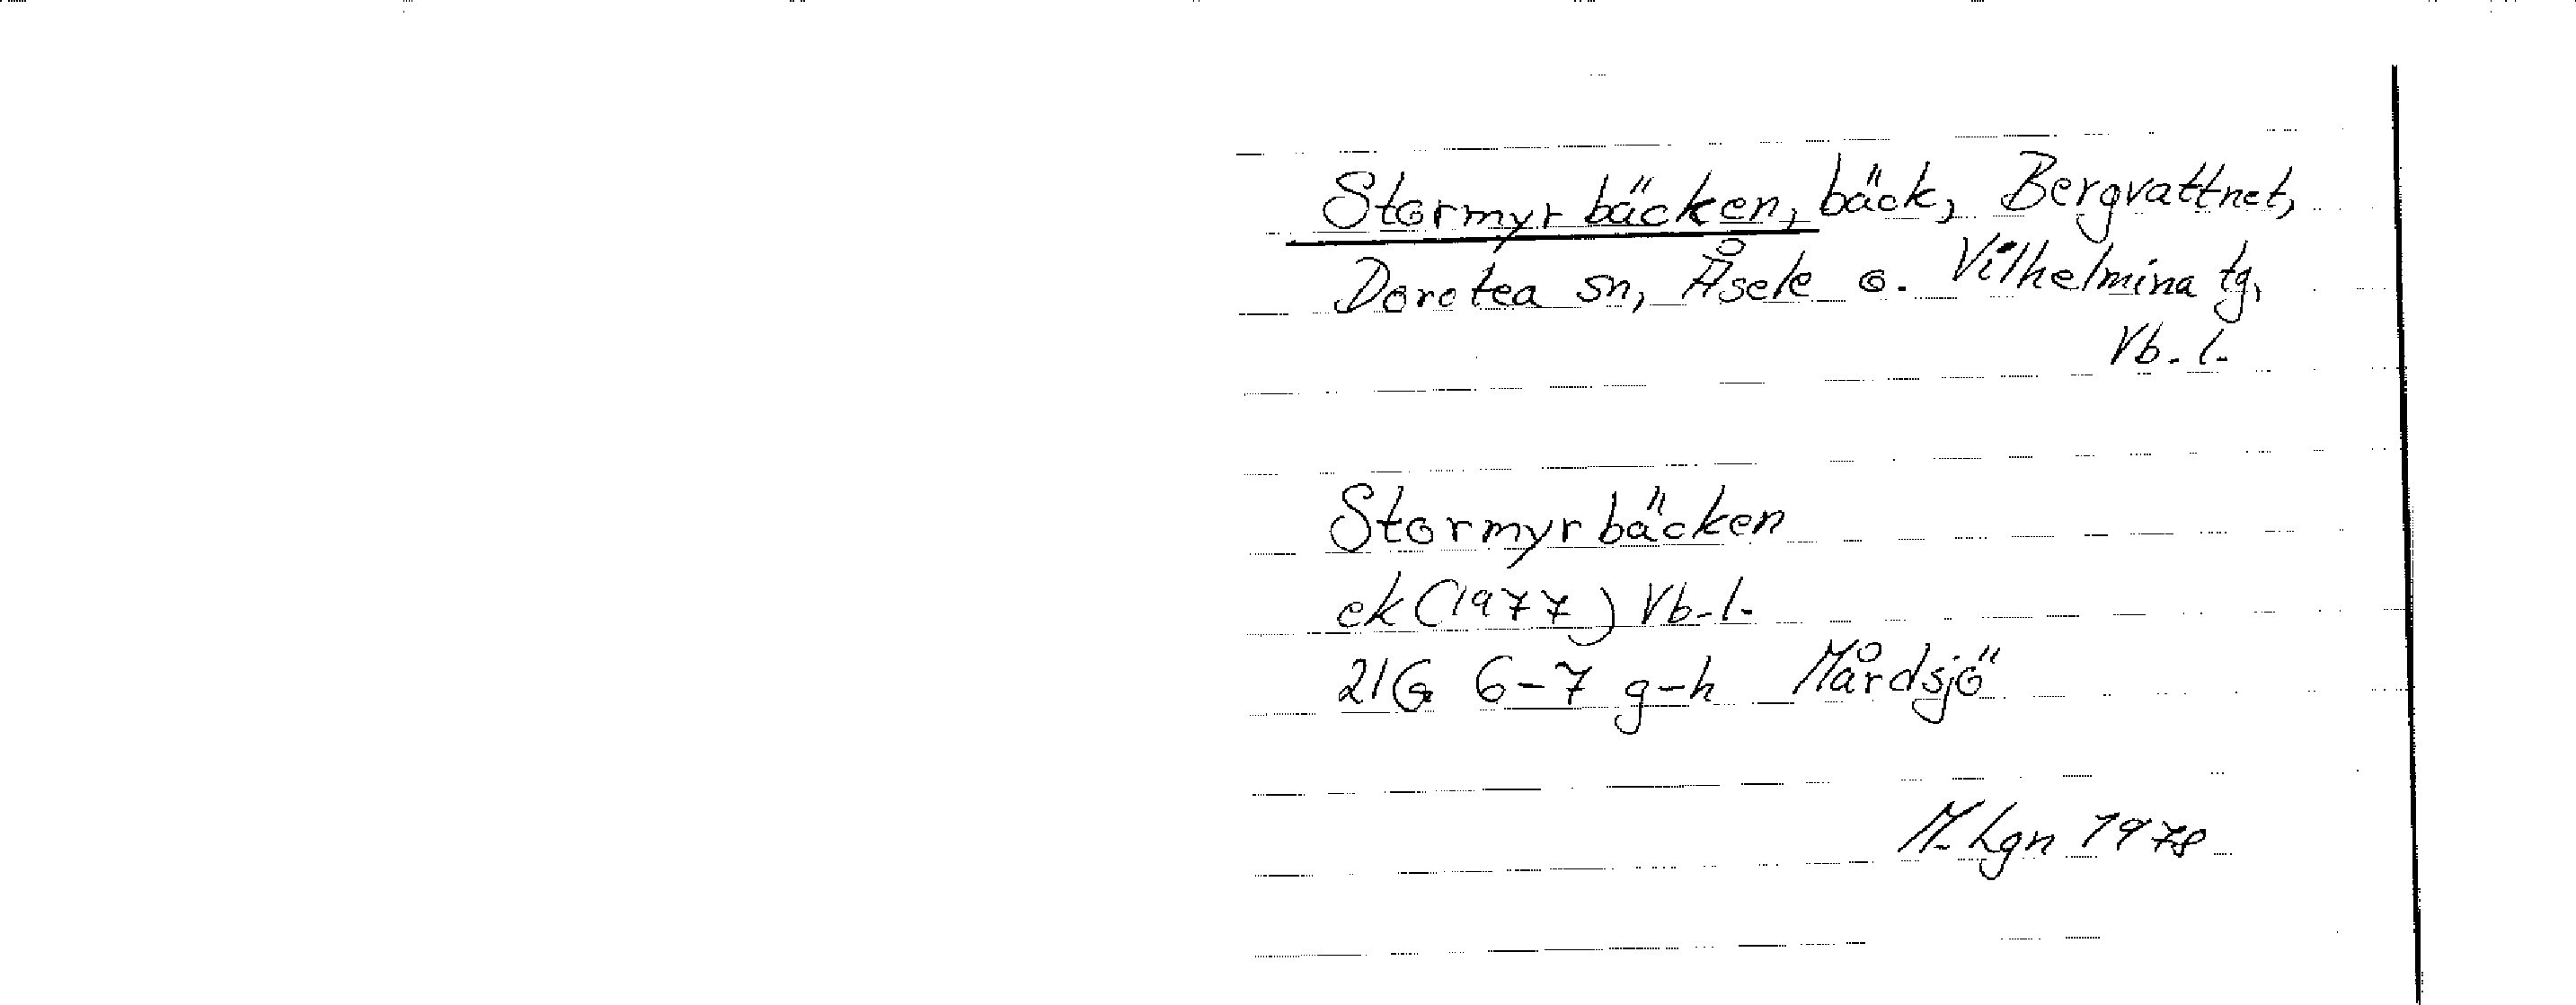 Stormyrbäcken, bäck, Bergvattnet,
Dorotea sn, Åsele o. Vilhelmina tg,
Vb. l.
Stormyrbäcken
ek (1977) Vb. l.
21G 6-7 g-h Mårdsjö
M. Lgn 1978